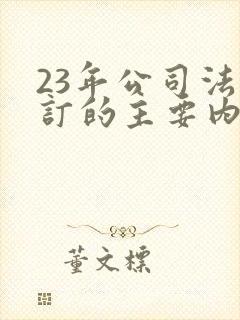 23年公司法
訂的主要內
董文標